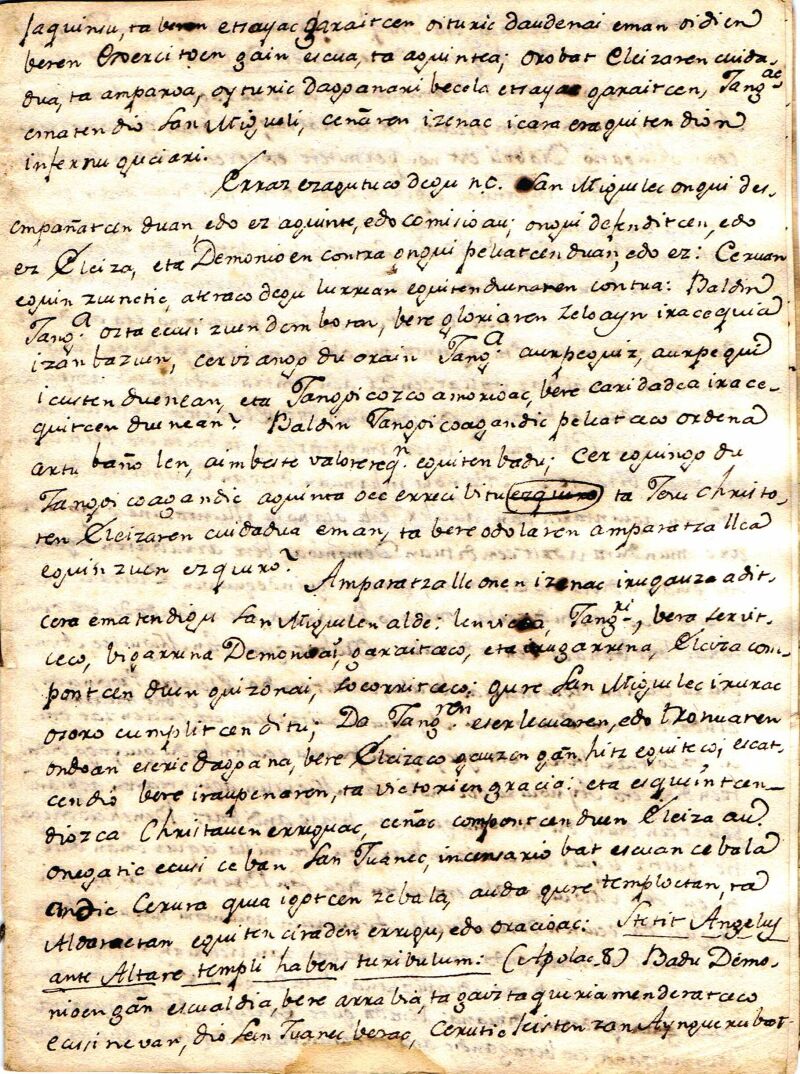 jaquinsu, ta beren etsayac garaitcen oituric daudenai eman oidien
beren Exercitoen gain escua, ta aguintea; orobat Eleizaren cuida-
dua, ta amparoa, oyturic dagoanari becela etsayac garaitcen, Tang.ac
ematen dio San Migueli, ceñaren izenac icara eraguiten dion
infernu guciari.
Erraz ezagutuco degu n.c. San Miguelec ongui des-
empañatcen duan, edo ez aguinte, edo comisio au; ongui defenditcen, edo
ez Eleiza, eta Demonioen contra ongui peleatcen duan, edo ez: Ceruan
eguin zunetic, ateraco degu lurrean eguiten duanaren contra: Baldin
Tang.a ozta ecusi zuen demboran, bere gloriaren zeloayn iracequia
izan bazuen, cer izango du orain Tang.a aurpeguiz, aurpegui
icusten duenean, eta Tangoicozco amorioac, bere caridadea irace-
quitcen duenean? Baldin Tangoicoagandic peleatceco ordena
artu baño len, aimbeste valorereq.n eguiten badu; cer eguingo du
Tangoicoagandic aguinta oec errecibitu ezquero ta Jesu Christo-
ren Eleizaren cuidadua eman, ta bere odolaren amparatzallea
eguin zuen ezquero?
Amparatzalle onen izenac iru gauza adit-
cera ematen digu San Miguelen alde: lenvicia, Tang.ri, bera servit-
ceco, bigarrena Demonioai, garaitceco, eta irugarrena, Eleiza com-
pontcen duen guizonai, socorritceco: gure San Miguelec irurac
osoro cumplitcen ditu; Da Tang.ren eserlecuaren, edo tronuaren
ondoan eseric dagoana, bere Eleizaco gauzen gañ hitz eguiteco; escat-
cen dio bere iraupenaren, ta victorien gracia: eta esquintcen
diozca Christauen erreguac, ceñac compontcen duen Eleiza au.
Onegatic ecusi ceban San Juanec, incensario bat escuan cebala
andic Cerura quea igotcen zebala, auda gure temploetan, ta
Aldareetan eguiten ciraden erregu, edo oracioac: Stetit Angelus
ante Altare templi habens turibulum: (Apolac. 8) Badu Demo-
nioen gañ escualdia, bere arrabia, ta gaiztaqueria menderatceco
ecusi nevan, dio San Juanec berac, Cerutic leisten zan Ayngueru bat